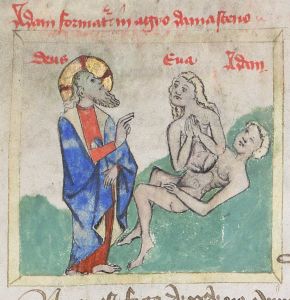 Adam format' in agro damasceno
Deus Eua Adam